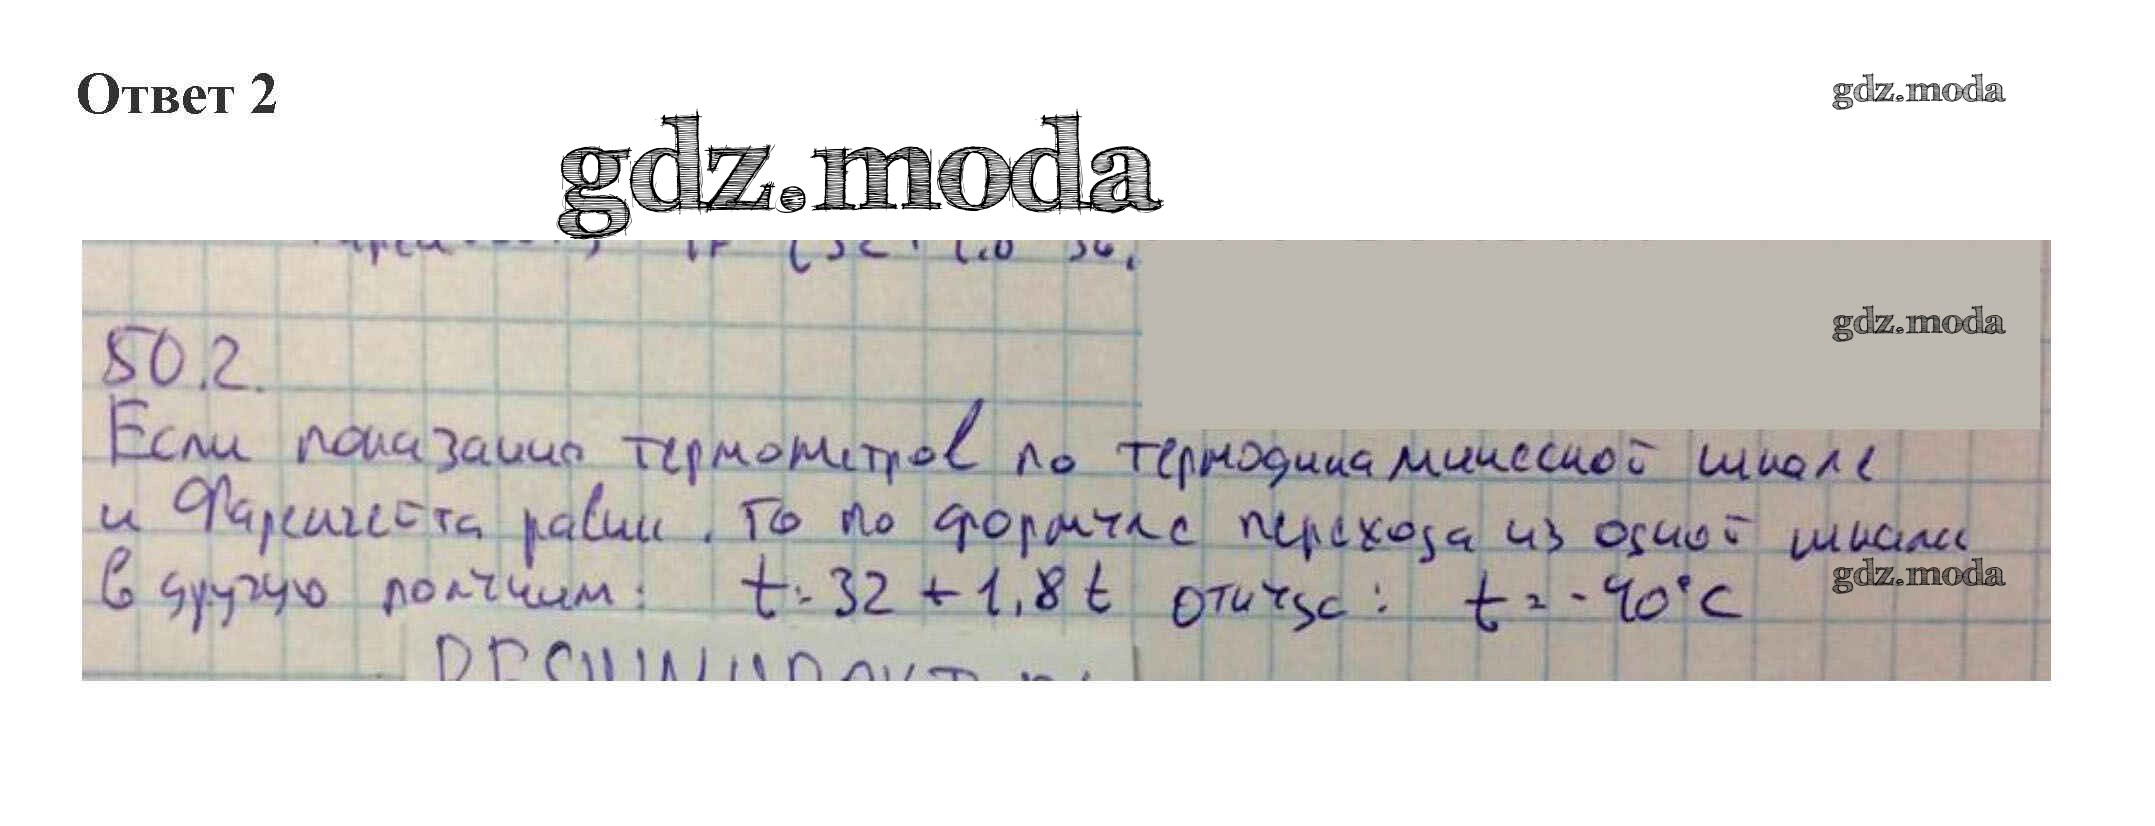 Ответ 2
gdz.moda
gdz.moda
gdz.moda
50.2.
Если показания термометров по термодинамической шкале
и Фаренгейта равны, то по формуле перехода из одной шкалы
gdz.moda
в другую получим: t = 32 + 1,8 t откуда: t = -40°C